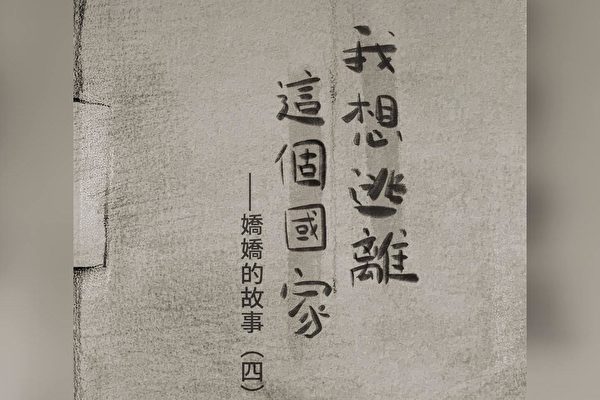 我想逃離
這個國家
——嬌嬌的故事（四）